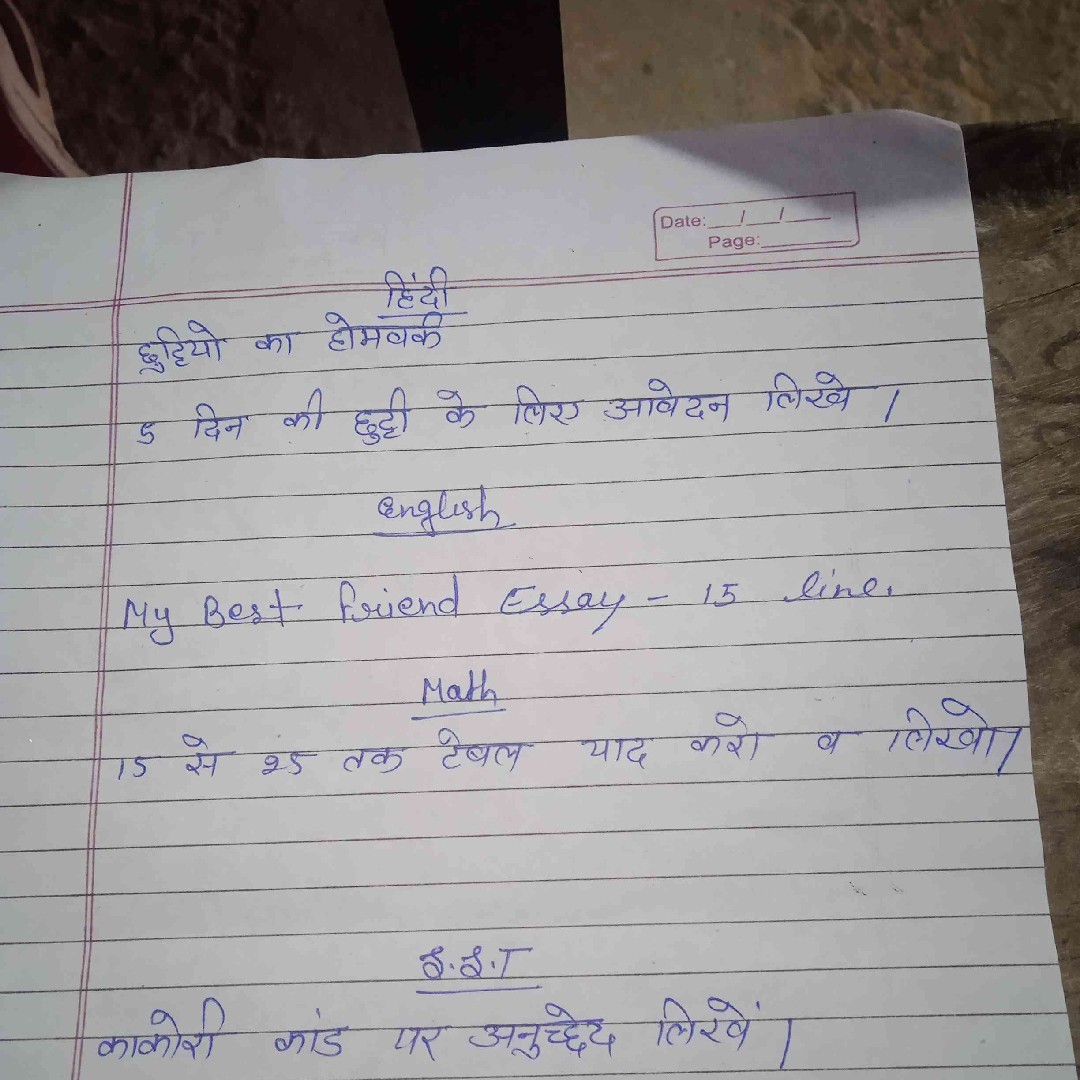 Date: __/__/__
Page: ______
हिंदी
छुट्टियो का होमवर्क
5 दिन की छुट्टी के लिए आवेदन लिखे ।
English
My Best Friend Essay - 15 line.
Math
15 से 25 तक टेबल याद करो व लिखो।
S.S.T
काकोरी कांड पर अनुच्छेद लिखें।